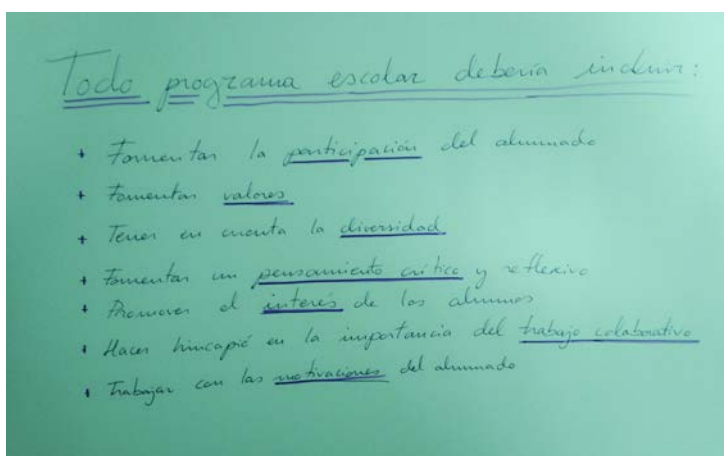 Todo programa escolar debería incluir:
+ Fomentar la participación del alumnado
+ Fomentar valores
+ Tener en cuenta la diversidad
+ Fomentar un pensamiento crítico y reflexivo
+ Promover el interés de los alumnos
+ Hacer hincapié en la importancia del trabajo colaborativo
+ Trabajar con las motivaciones del alumnado